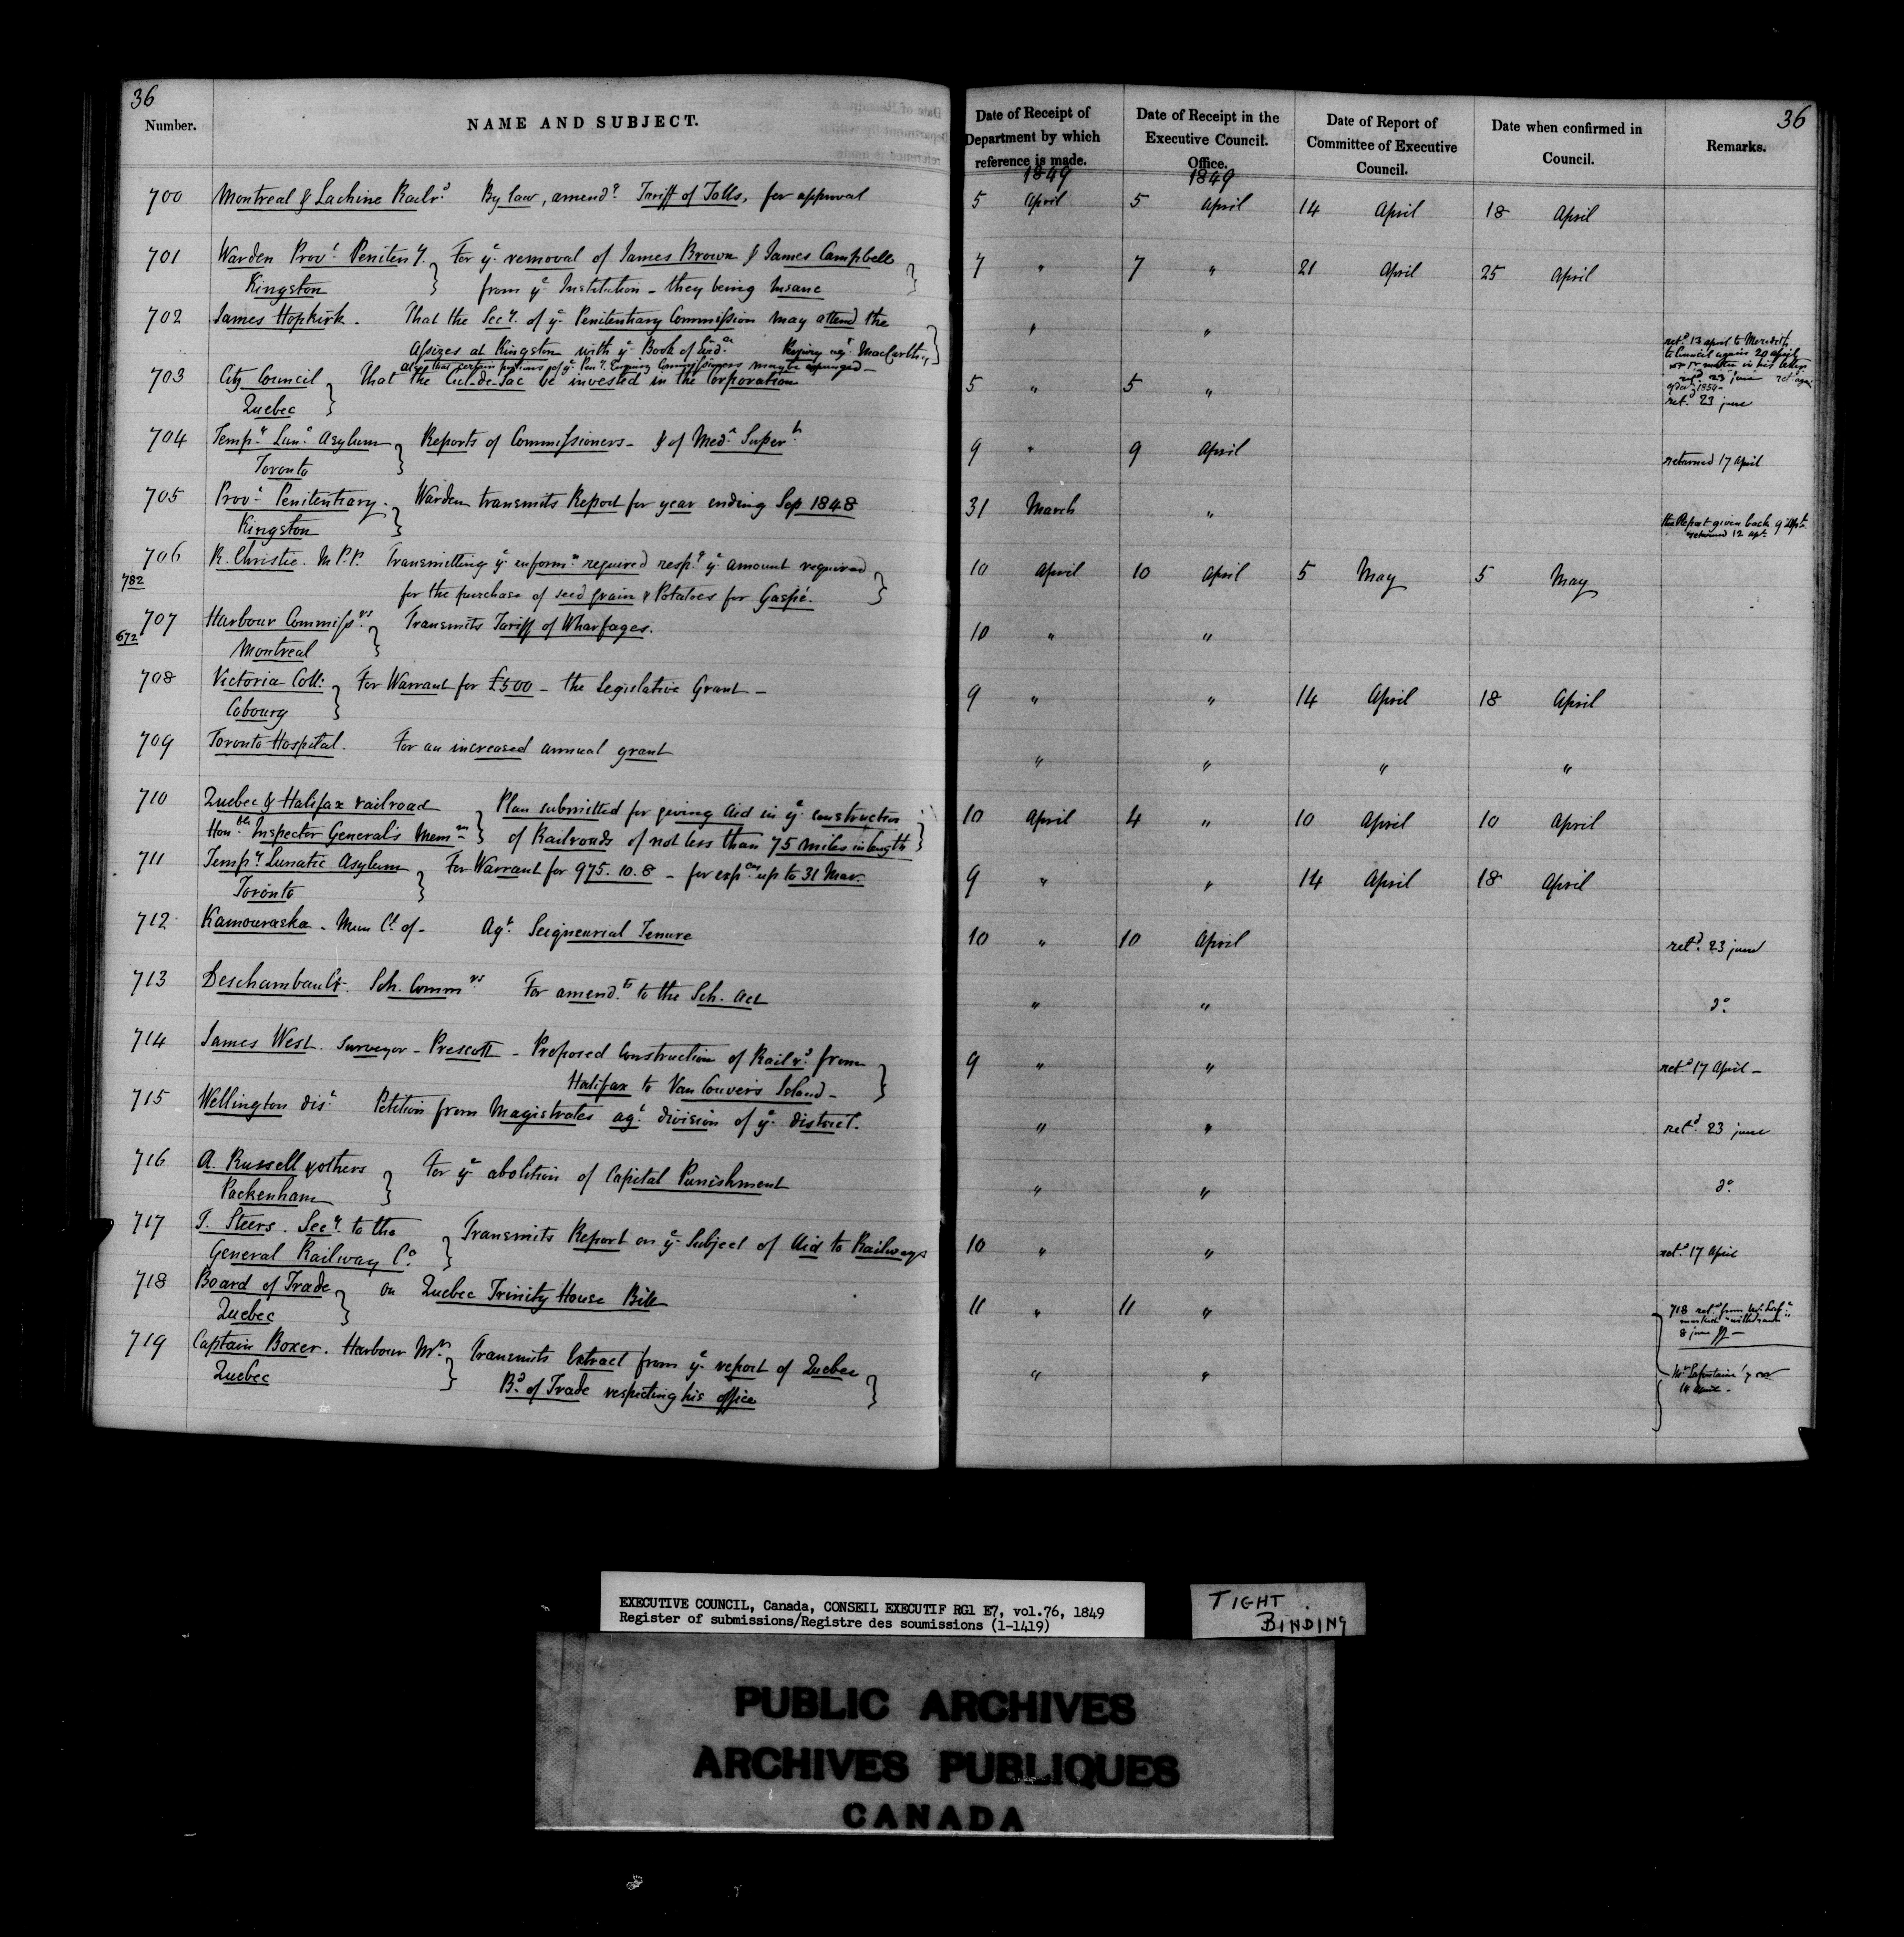 36
Number.
NAME AND SUBJECT.
Date of Receipt of Department by which reference is made.
Date of Receipt in the Executive Council. Office.
Date of Report of Committee of Executive Council.
Date when confirmed in Council.
Remarks.
36
1849 1849
700 Montreal & Lachine Railrd By law, amendg Tariff of Tolls, for approval 5 April 5 April 14 April 18 April
701 Warden Provl Penitenty. For ye removal of James Brown & James Campbell 7 " 7 " 21 April 25 April
Kingston from ye Institution - they being Insane
702 James Hopkirk. That the Secy. of ye Penitentiary Commission may attend the " "
Assizes at Kingston with ye Book of Evidce
retd 13 april to Meredith
to Council again 20 april
also that certain portions of ye Peny. Enquiry Commissioners may be expunged -
703 City Council That the Cul-de-Sac be invested in the Corporation 5 " 5 "
Quebec
retd 23 june
704 Tempy Lunc Asylum Reports of Commissioners - & of Medl Supert 9 " 9 April returned 17 April
Toronto
705 Provl Penitentiary. Warden transmits Report for year ending Sep 1848 31 March "
Kingston
the Report given back 9 Apl
returned 12 apl
706 R. Christie. M.P.P. Transmitting ye informn required respg ye amount required 10 April 10 April 5 May 5 May
782 for the purchase of seed grain & Potatoes for Gaspé.
707 Harbour Commissrs Transmits Tariff of Wharfages. 10 " "
672 Montreal
708 Victoria Coll: For Warrant for £500 - the Legislative Grant - 9 " " 14 April 18 April
Cobourg
709 Toronto Hospital. For an increased annual grant " " " "
710 Quebec & Halifax railroad Plan submitted for giving Aid in ye construction 10 April 4 " 10 April 10 April
Honble Inspector General's Memm of Railroads of not less than 75 miles in length
711 Tempy Lunatic Asylum For Warrant for 975.10.8 - for expces up to 31 Mar. 9 " " 14 April 18 April
Toronto
712 Kamouraska - Mun Cl of - Agt Seigneurial Tenure 10 " 10 April retd 23 june
713 Deschambault. Sch. Commrs For amendts to the Sch. Act " " do
714 James West. Surveyor - Prescott - Proposed Construction of Railrd from 9 " " retd 17 April -
Halifax to Van Couver's Island -
715 Wellington dist Petition from Magistrates agt division of ye district. " " retd 23 june
716 A. Russell & others For ye abolition of Capital Punishment " " do
Packenham
717 T. Steers. Secy. to the Transmits Report on ye Subject of Aid to Railways 10 " " retd 17 April
General Railway Co
718 Board of Trade on Quebec Trinity House Bill 11 " 11 "
Quebec
718 retd from Mr Laf
8 june
719 Captain Boxer. Harbour Mr Transmits Extract from ye report of Quebec " "
Quebec Bd of Trade respecting his office
Mr Lafontaine
14 April -
EXECUTIVE COUNCIL, Canada, CONSEIL EXECUTIF RG1 E7, vol.76, 1849
Register of submissions/Registre des soumissions (1-1419)
TIGHT BINDING
PUBLIC ARCHIVES
ARCHIVES PUBLIQUES
CANADA